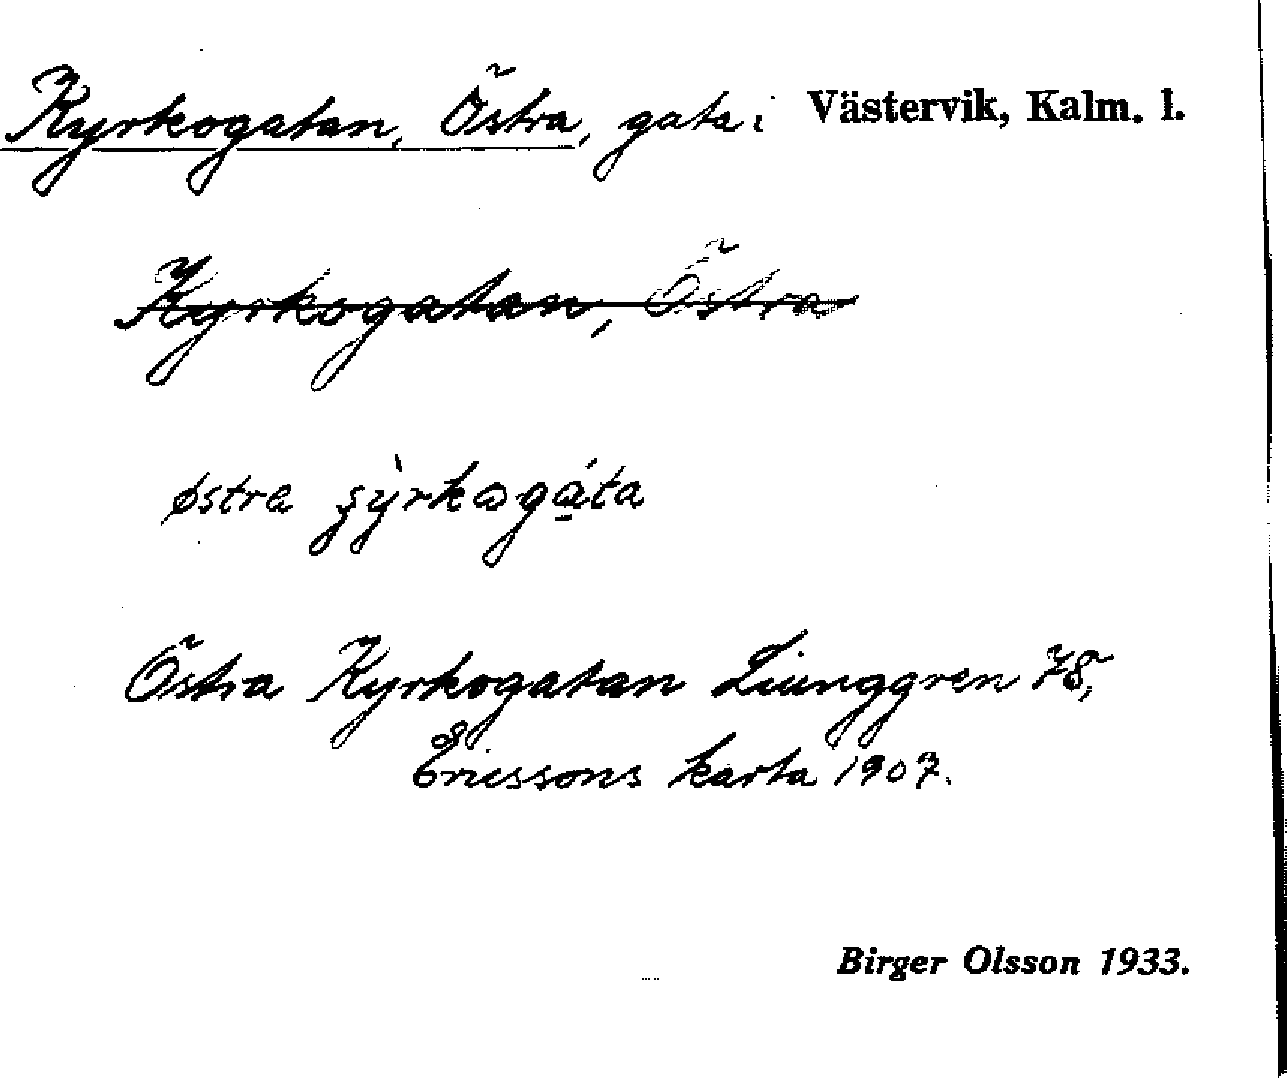 Kyrkogatan, Östra, gata i Västervik, Kalm. l.
Kyrkogatan, Östra
östra
Östra Kyrkogatan Ljunggren 78,
Ericssons karta 1907.
Birger Olsson 1933.